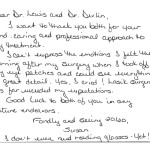 Dear Dr. Lewis and Dr. Durlin,
I want to thank you both for your
and caring and professional approach to
treatment.
I can't express the emotions I felt the
morning after my surgery when I took off
eye patches and could see everything
great detail. Yes, I cried! Lasik surgery
has far exceeded my expectations.
Good luck to both of you in any
future endeavors.
Fondly and Seeing 20/20,
Susan
I don't even need reading glasses - Yet!